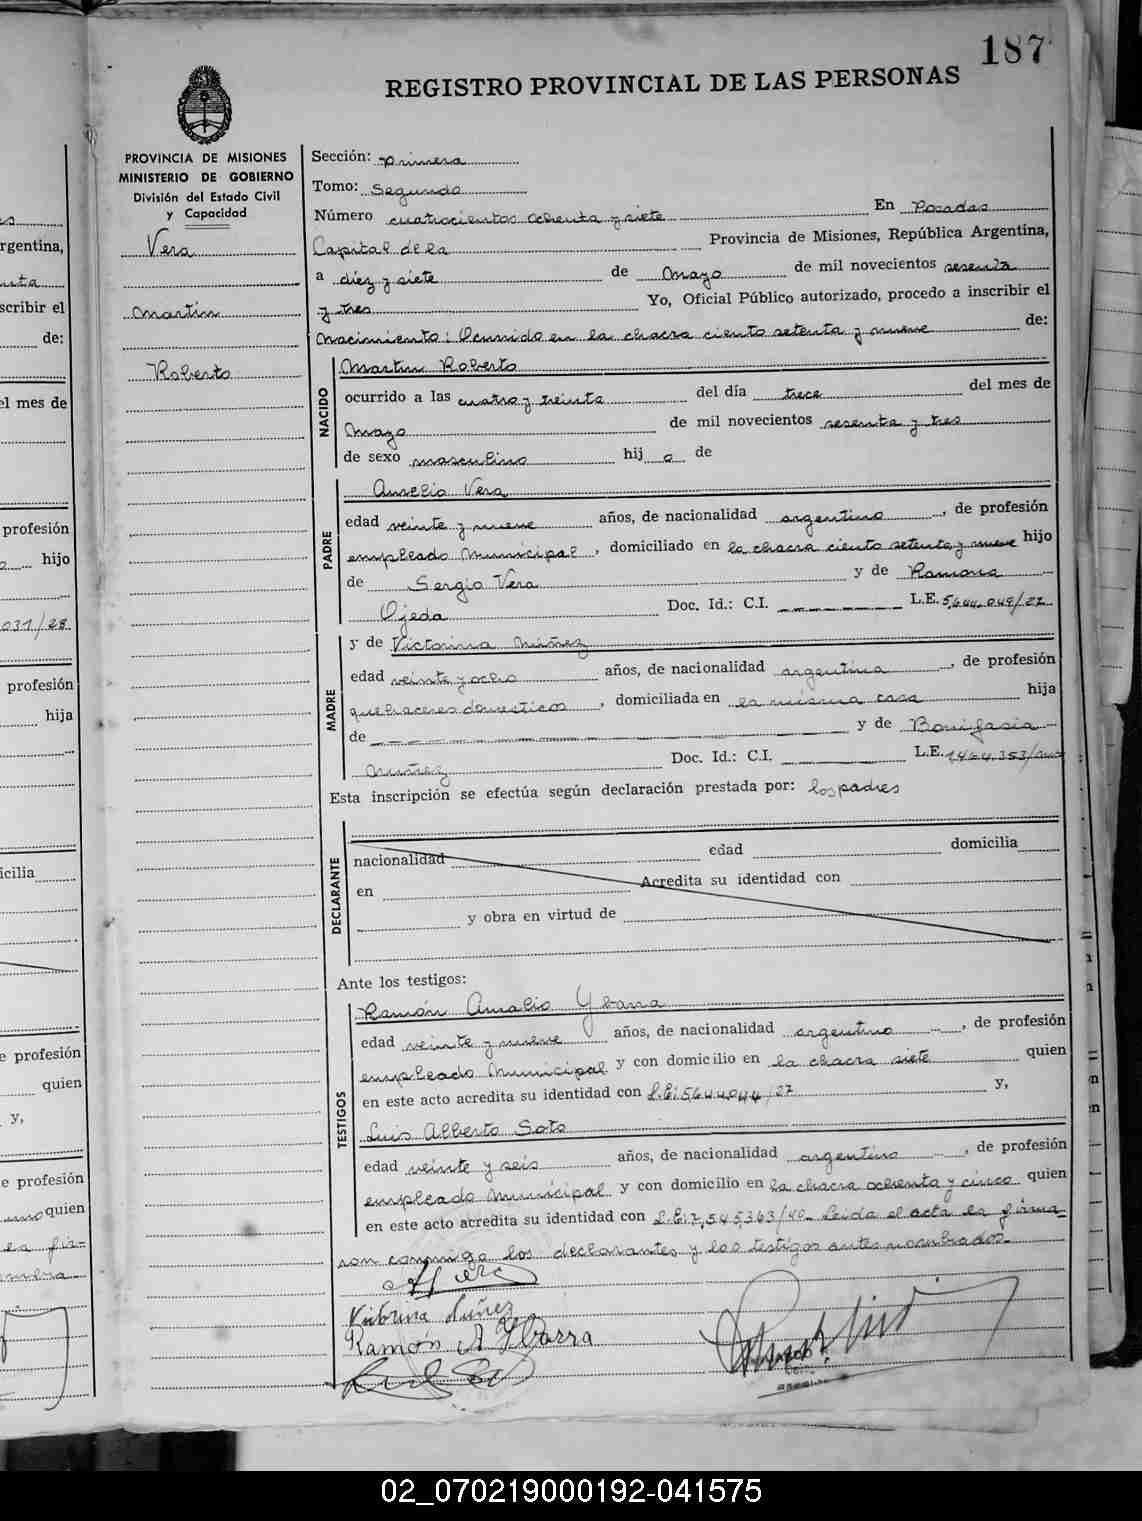 187
REGISTRO PROVINCIAL DE LAS PERSONAS
PROVINCIA DE MISIONES
MINISTERIO DE GOBIERNO
División del Estado Civil
y Capacidad
Vera
Martin
Roberto
Sección: primera
Tomo: Segundo
Número cuatrocientos ochenta y siete En Posadas
Capital de la Provincia de Misiones, República Argentina,
a diez y siete de mayo de mil novecientos sesenta
y tres Yo, Oficial Público autorizado, procedo a inscribir el
nacimiento: Ocurrido en la chacra ciento setenta y nueve de:
NACIDO
Martin Roberto
ocurrido a las cuatro y treinta del día trece del mes de
mayo de mil novecientos sesenta y tres
de sexo masculino hij o de
PADRE
Aurelio Vera
edad veinte y nueve años, de nacionalidad argentino, de profesión
empleado Municipal, domiciliado en la chacra ciento setenta y nueve hijo
de Sergio Vera y de Ramona
Ojeda Doc. Id.: C.I. L.E. 5.644.048/27
MADRE
y de Victorina Núñez
edad veinte y ocho años, de nacionalidad argentina, de profesión
quehaceres domesticos, domiciliada en la misma casa hija
de y de Bonifasia
Núñez Doc. Id.: C.I. L.E. 1.464.353/
Esta inscripción se efectúa según declaración prestada por: los padres
DECLARANTE
nacionalidad edad domicilia
en Acredita su identidad con
y obra en virtud de
Ante los testigos:
TESTIGOS
Ramón Amalio Ybarra
edad veinte y nueve años, de nacionalidad argentino, de profesión
empleado Municipal y con domicilio en la chacra siete quien
en este acto acredita su identidad con L.E: 5.644.044/27 y,
Luis Alberto Soto
edad veinte y seis años, de nacionalidad argentino, de profesión
empleado Municipal y con domicilio en la chacra ochenta y cinco quien
en este acto acredita su identidad con L.E: 7.545.363/40- Leida el acta la firma
ron conmigo los declarantes y los testigos antes nombrados-
A Vera
Victorina Nuñez
Ramón A Ybarra
rgentina,
scribir el
de:
el mes de
profesión
hijo
031/28
profesión
hija
icilia
e profesión
quien
y,
e profesión
quien
02_070219000192-041575